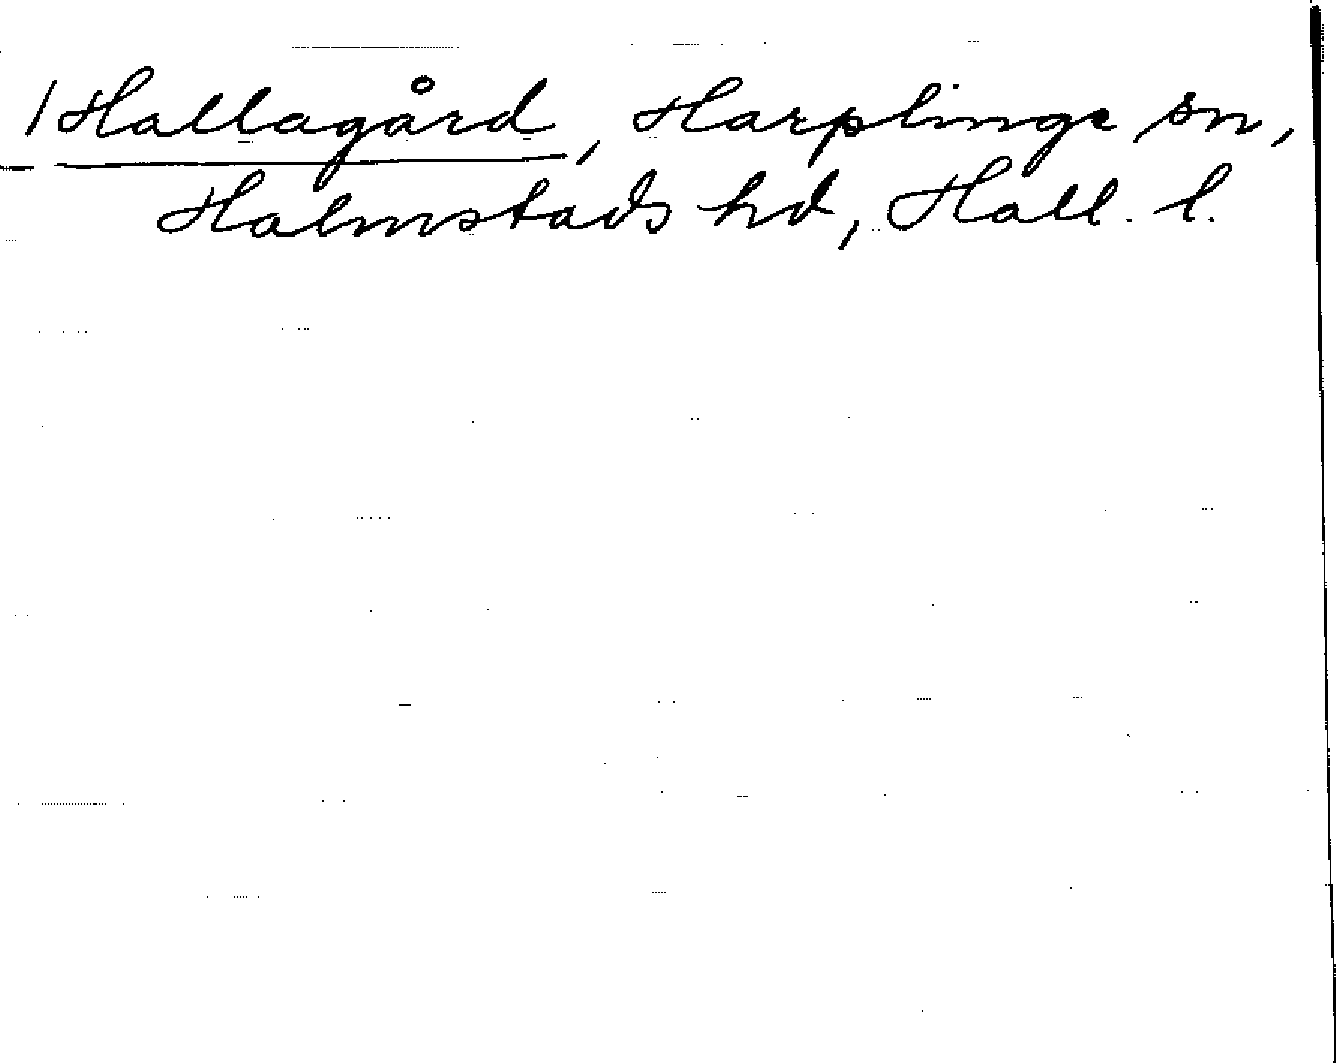 /Hallagård, Harplinge sn,
Halmstads hd, Hall. l.